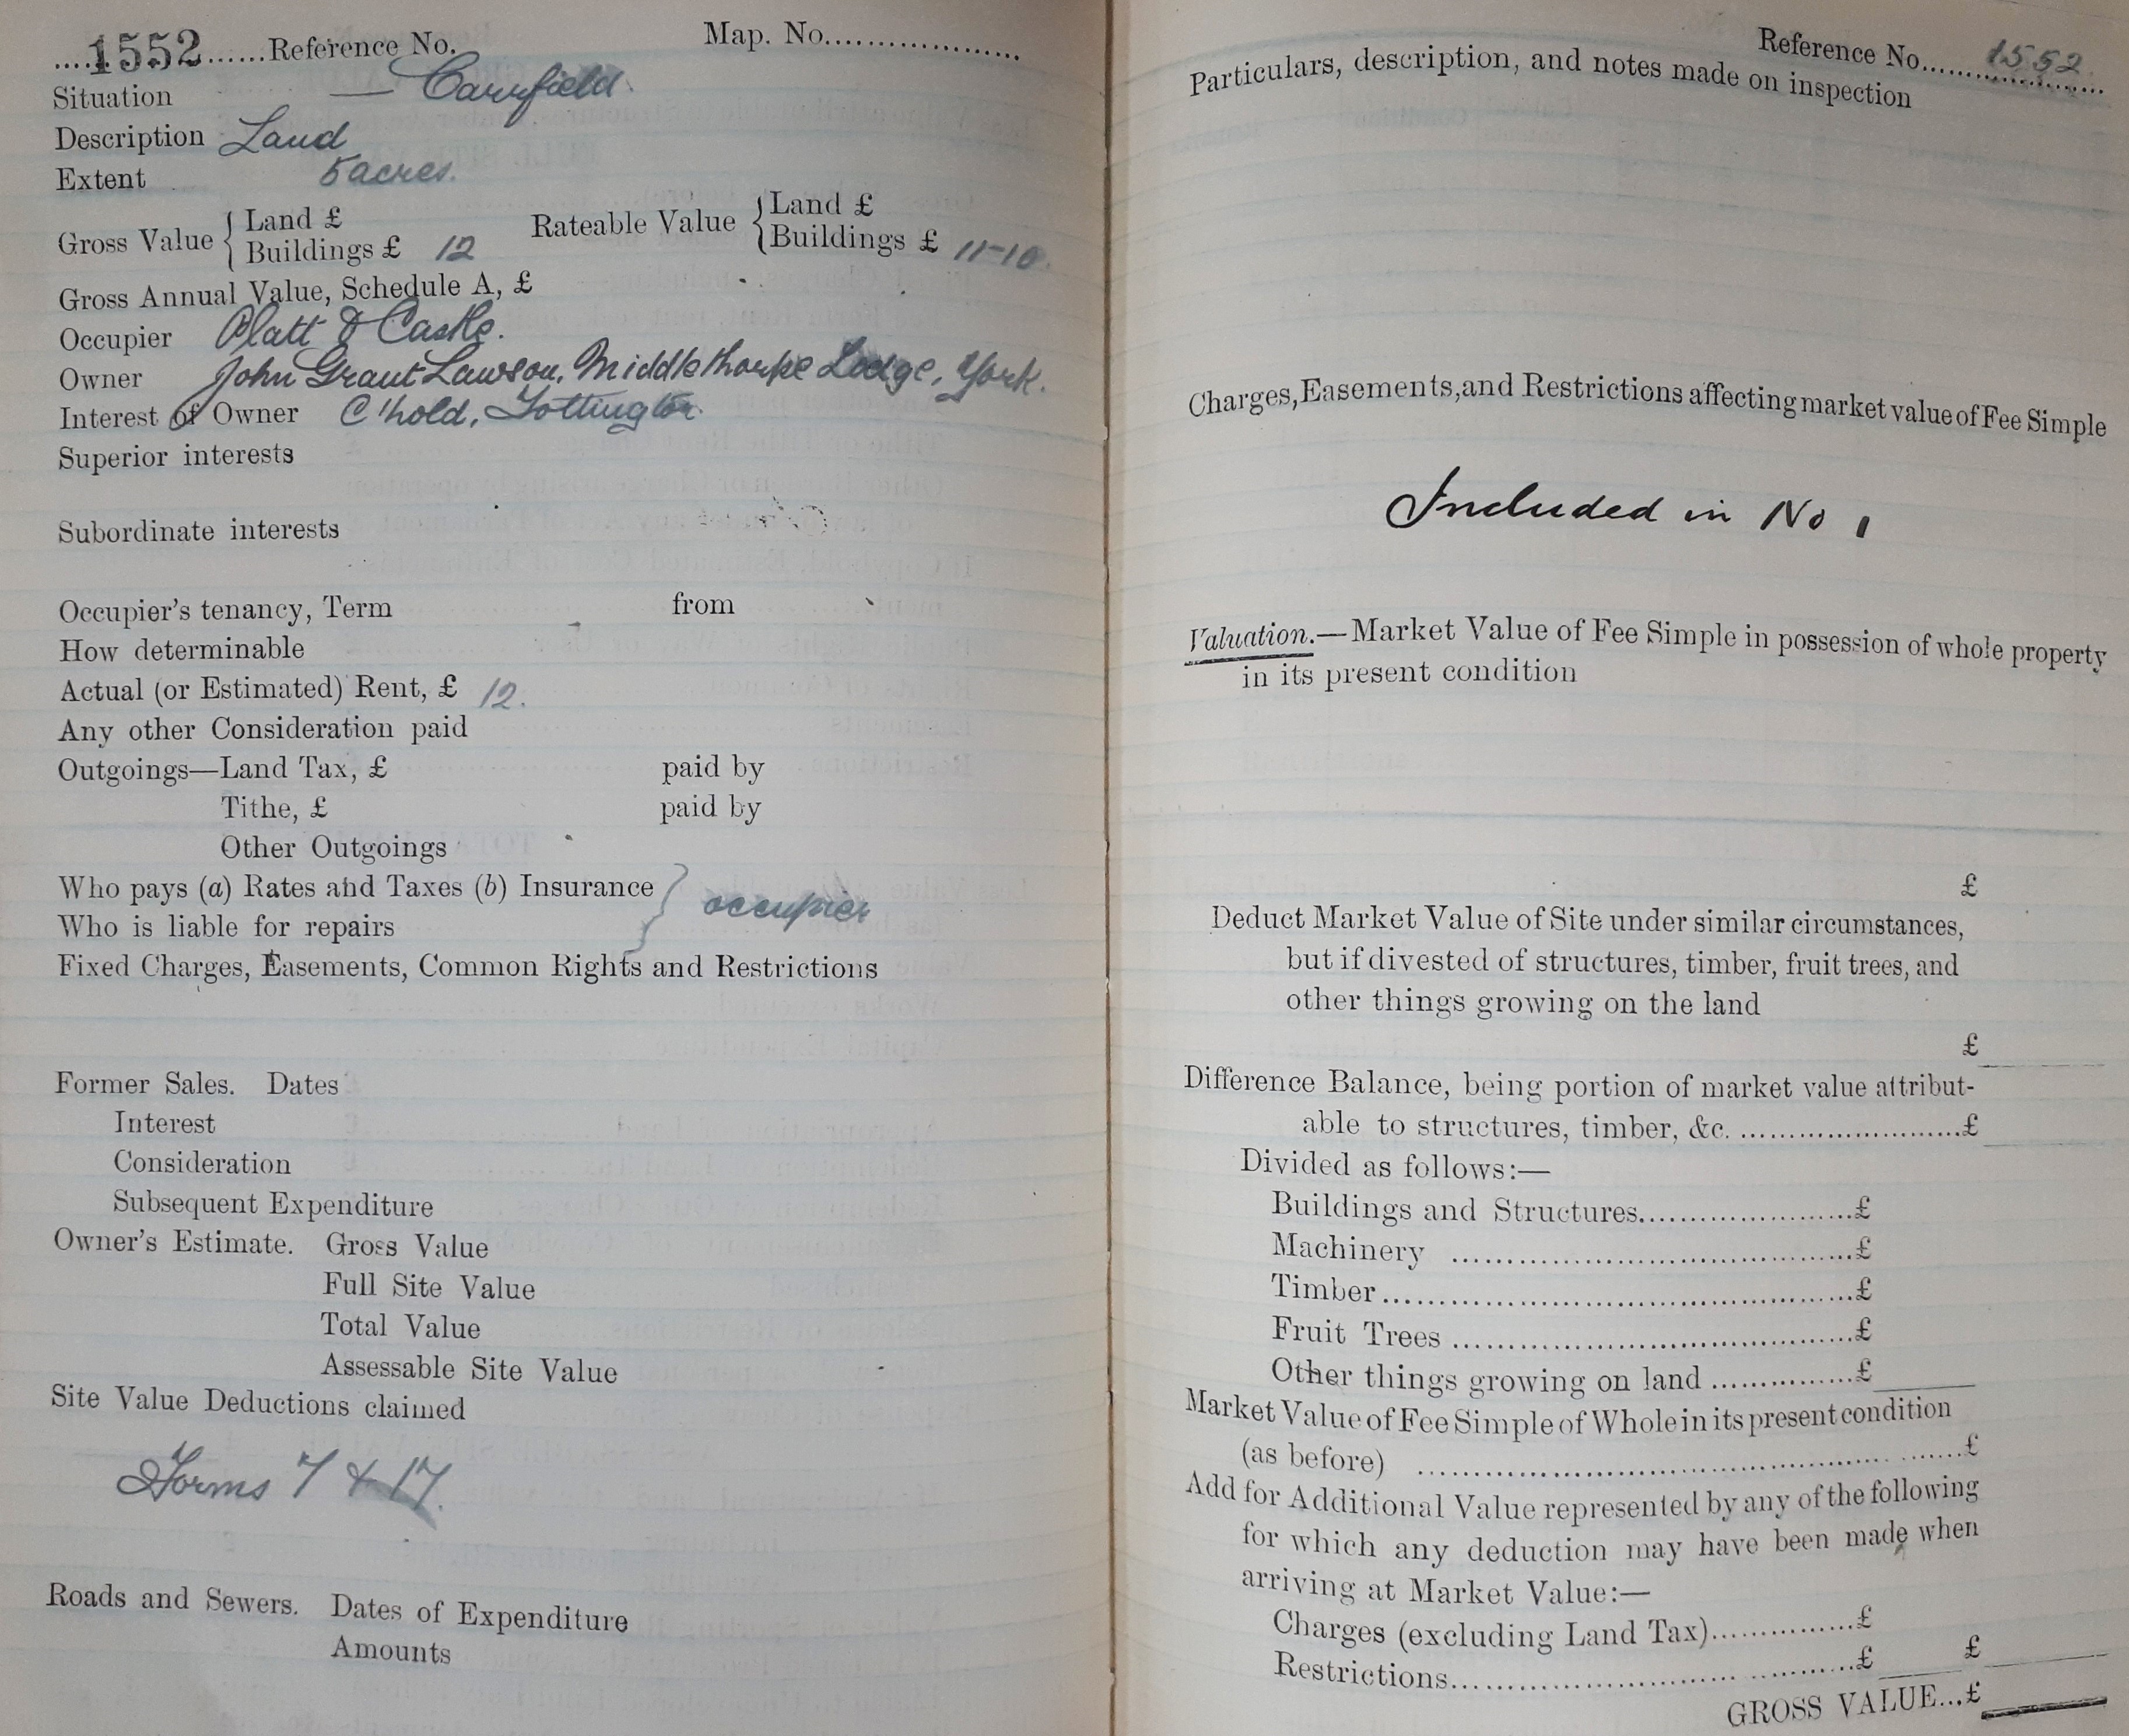 ....1552......Reference No. Map. No....................
Situation — Carrfield.
Description Land
Extent 5 acres.
Gross Value { Land £ Rateable Value { Land £
Buildings £ 12 Buildings £ 11-10.
Gross Annual Value, Schedule A, £
Occupier Platt & Castle.
Owner John Grant Lawson, Middlethorpe Lodge, York.
Interest of Owner C'hold, Tottington.
Superior interests
Subordinate interests
Occupier's tenancy, Term from
How determinable
Actual (or Estimated) Rent, £ 12.
Any other Consideration paid
Outgoings—Land Tax, £ paid by
Tithe, £ paid by
Other Outgoings
Who pays (a) Rates and Taxes (b) Insurance } occupier
Who is liable for repairs
Fixed Charges, Easements, Common Rights and Restrictions
Former Sales. Dates
Interest
Consideration
Subsequent Expenditure
Owner's Estimate. Gross Value
Full Site Value
Total Value
Assessable Site Value
Site Value Deductions claimed
Forms 7 & 17.
Roads and Sewers. Dates of Expenditure
Amounts
Reference No. 1552
Particulars, description, and notes made on inspection
Charges, Easements, and Restrictions affecting market value of Fee Simple
Included in No 1
Valuation.—Market Value of Fee Simple in possession of whole property
in its present condition
£
Deduct Market Value of Site under similar circumstances,
but if divested of structures, timber, fruit trees, and
other things growing on the land
£
Difference Balance, being portion of market value attribut-
able to structures, timber, &c. ........................£
Divided as follows:—
Buildings and Structures.......................£
Machinery ...........................................£
Timber..................................................£
Fruit Trees ...........................................£
Other things growing on land ...............£
Market Value of Fee Simple of Whole in its present condition
(as before) ......................................................£
Add for Additional Value represented by any of the following
for which any deduction may have been made when
arriving at Market Value:—
Charges (excluding Land Tax)...............£
Restrictions.............................................£ £
GROSS VALUE...£